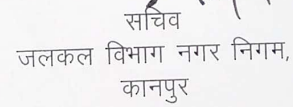 सचिव
जलकल विभाग नगर निगम,
कानपुर